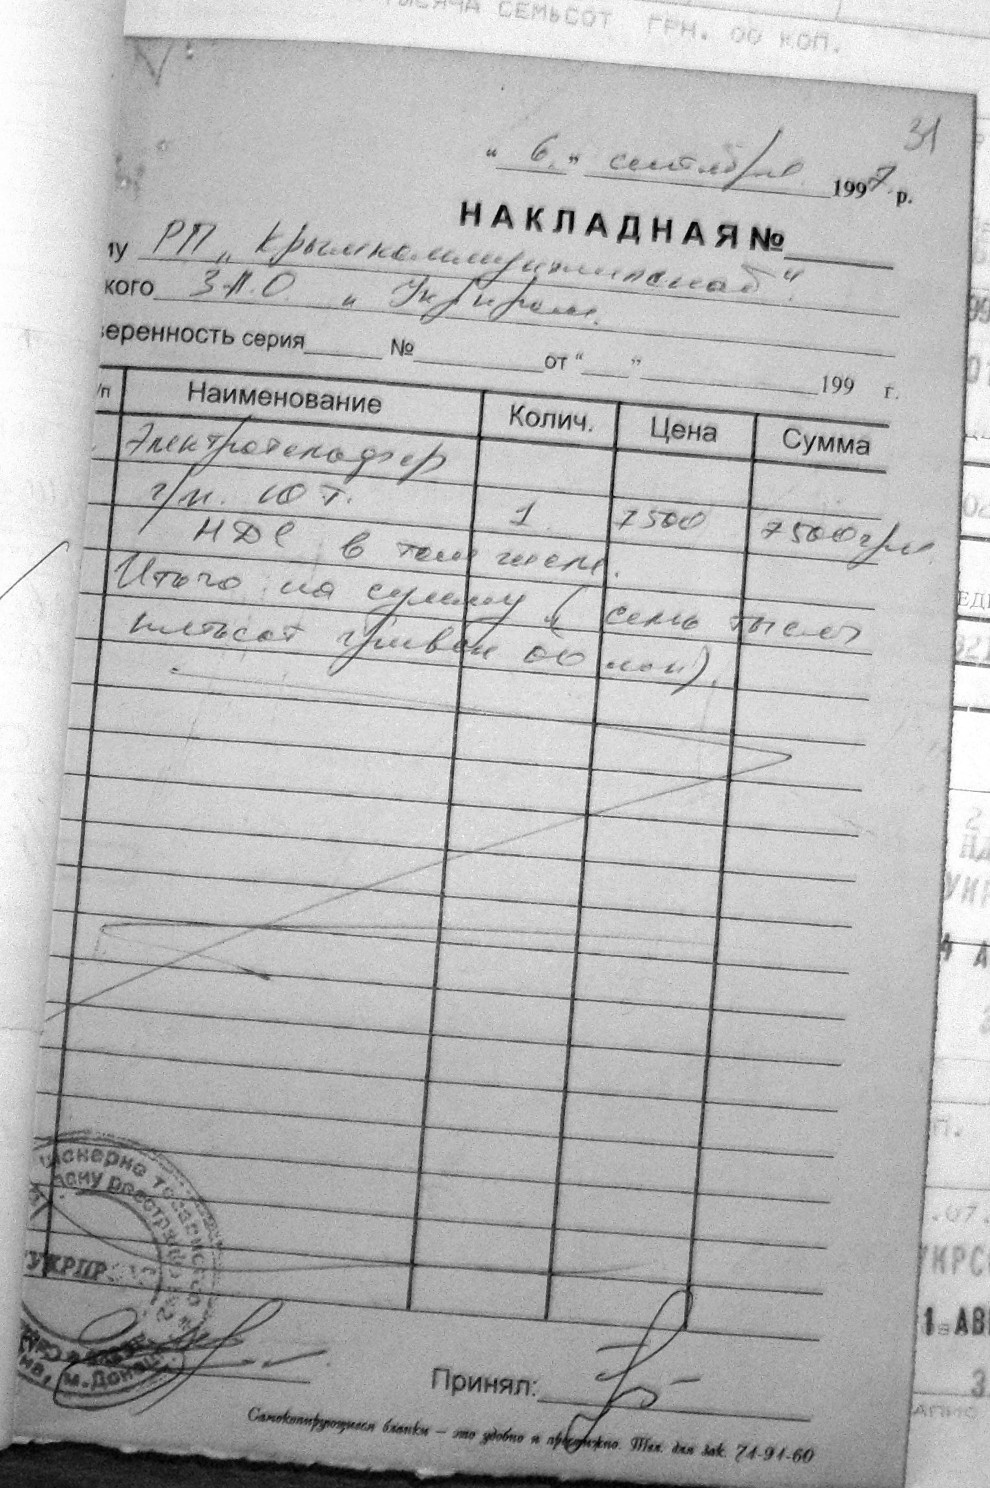 ТЫСЯЧА СЕМЬСОТ ГРН. 00 КОП.
31
"6." сентября 1997 р.
НАКЛАДНАЯ №
му РП "Крымкоммунпромснаб".
кого З.А.О. "Укрпром.
веренность серия № от " " 199 г.
/п Наименование Колич. Цена Сумма
Электротельфер
г/п. 10 т. 1 7500 7500 грн
НДС в том числе.
Итого на сумму (семь тысяч
пятьсот гривен 00 коп).
УКРПР
м.Донец
Принял:
Самокопирующиеся бланки – это удобно и престижно. Тел. для зак. 71-91-60